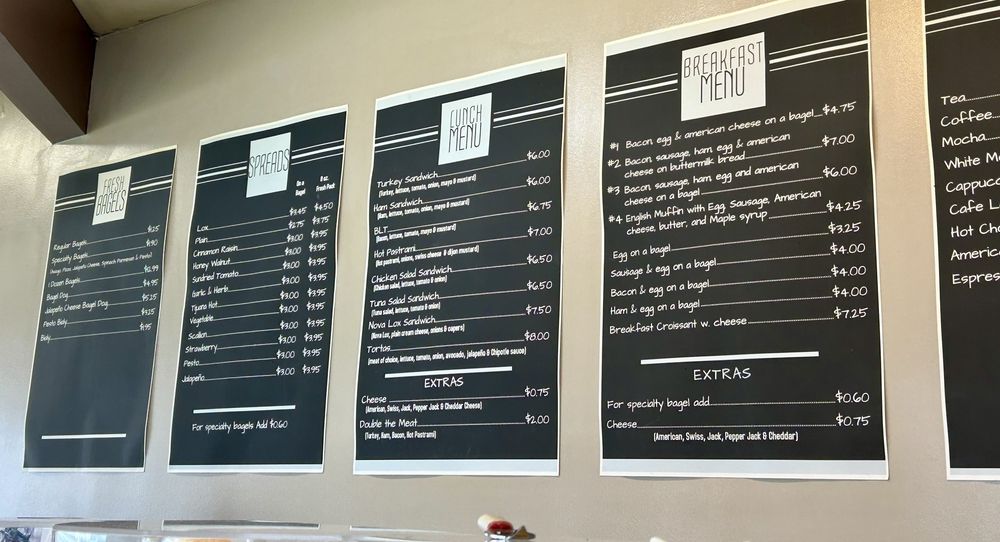 FRESH
BAGELS
Regular Bagels
Specialty Bagels
1 Dozen Bagels $12.99
Bagel Dog $4.95
Jalapeño Cheese Bagel Dog $5.25
Pesto Bialy
Bialy
SPREADS
On a Bagel 8 oz. Fresh Pack
Lox $3.45 $4.50
Plain $2.75 $3.75
Cinnamon Raisin $3.00 $3.95
Honey Walnut $3.00 $3.95
Sundried Tomato $3.00 $3.95
Garlic & Herb $3.00 $3.95
Tijuana Hot $3.00 $3.95
Vegetable $3.00 $3.95
Scallion $3.00 $3.95
Strawberry $3.00 $3.95
Pesto $3.00 $3.95
Jalapeño $3.00 $3.95
For specialty bagels Add $0.60
LUNCH
MENU
Turkey Sandwich $6.00
(Turkey, lettuce, tomato, onion, mayo & mustard)
Ham Sandwich $6.00
(Ham, lettuce, tomato, onion, mayo & mustard)
BLT $6.75
(Bacon, lettuce, tomato, mayo & mustard)
Hot Pastrami $7.00
(Hot pastrami, onions, swiss cheese & dijon mustard)
Chicken Salad Sandwich $6.50
(Chicken salad, lettuce, tomato & onion)
Tuna Salad Sandwich $6.50
(Tuna salad, lettuce, tomato & onion)
Nova Lox Sandwich $7.50
(Nova Lox, plain cream cheese, onions & capers)
Tortas $8.00
(meat of choice, lettuce, tomato, onion, avocado, jalapeño & Chipotle sauce)
EXTRAS
Cheese $0.75
(American, Swiss, Jack, Pepper Jack & Cheddar Cheese)
Double the Meat $2.00
(Turkey, Ham, Bacon, Hot Pastrami)
BREAKFAST
MENU
#1 Bacon, egg & american cheese on a bagel $4.75
#2 Bacon, sausage, ham, egg & american
cheese on buttermilk bread $7.00
#3 Bacon, sausage, ham, egg and american
cheese on a bagel $6.00
#4 English Muffin with Egg, Sausage, American
cheese, butter, and Maple syrup $4.25
Egg on a bagel $3.25
Sausage & egg on a bagel $4.00
Bacon & egg on a bagel $4.00
Ham & egg on a bagel $4.00
Breakfast Croissant w. cheese $7.25
EXTRAS
For specialty bagel add $0.60
Cheese $0.75
(American, Swiss, Jack, Pepper Jack & Cheddar)
Tea
Coffee
Mocha
White M
Cappucc
Cafe L
Hot Cho
Americ
Espres